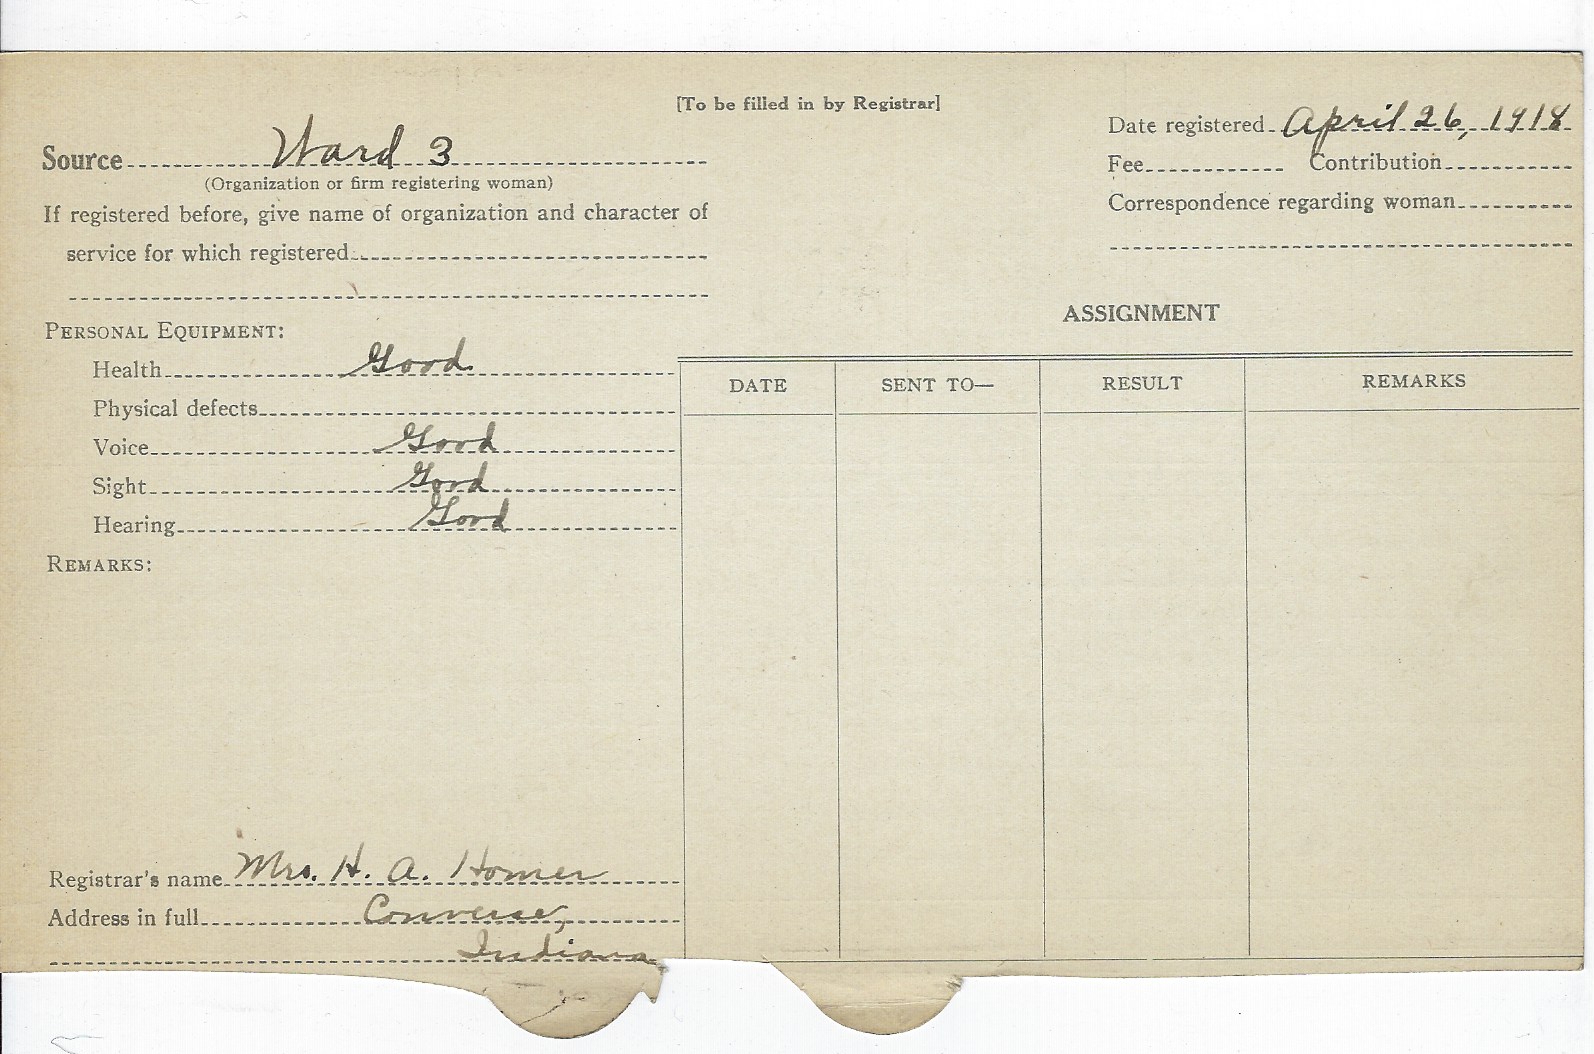 [To be filled in by Registrar]
Date registered April 26, 1918
Source Ward 3
(Organization or firm registering woman)
Fee Contribution
If registered before, give name of organization and character of
service for which registered
Correspondence regarding woman
ASSIGNMENT
PERSONAL EQUIPMENT:
Health Good
Physical defects
Voice Good
Sight Good
Hearing Good
REMARKS:
DATE SENT TO— RESULT REMARKS
Registrar's name Mrs. H. A. Homer
Address in full Converse,
Indiana